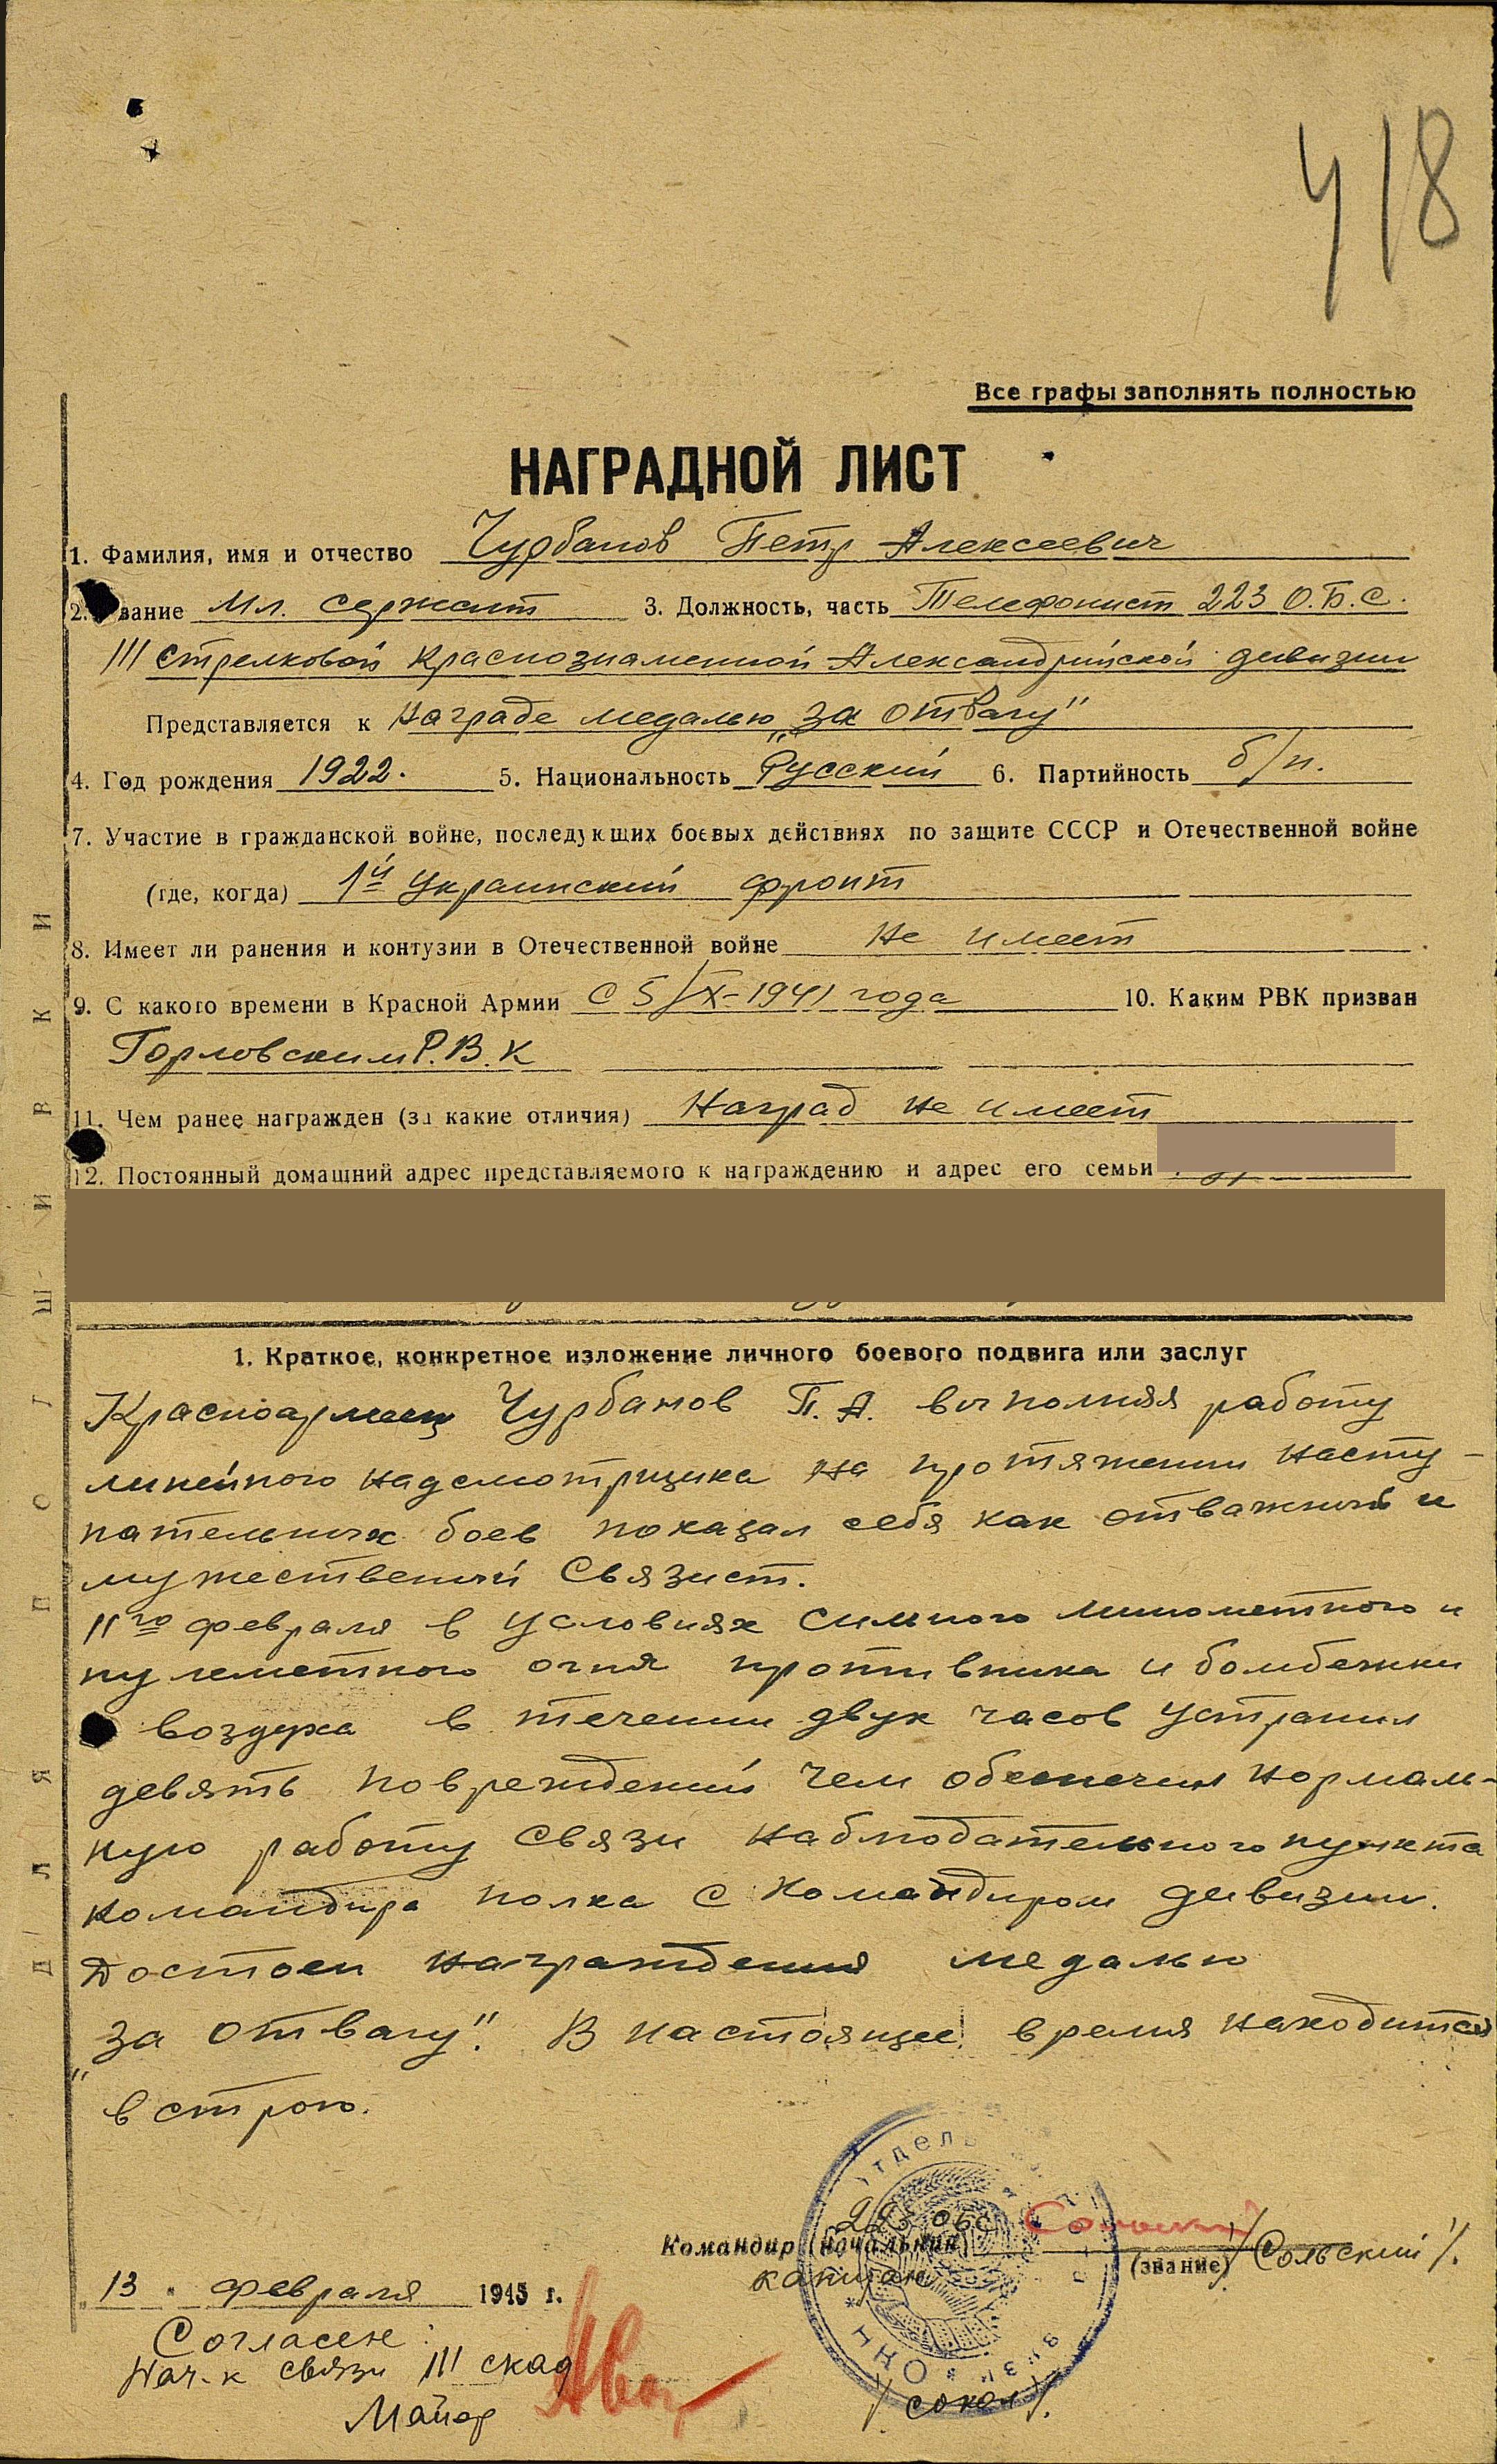 418
Все графы заполнять полностью
НАГРАДНОЙ ЛИСТ
1. Фамилия, имя и отчество Чурбанов Петр Алексеевич
2. вание Мл. сержант 3. Должность, часть Телефонист 223 О.Б.С.
111 стрелковой Краснознаменной Александрийской дивизии
Представляется к награде медалью „За отвагу"
4. Год рождения 1922. 5. Национальность Русский 6. Партийность б/п.
7. Участие в гражданской войне, последующих боевых действиях по защите СССР и Отечественной войне
(где, когда) 1й Украинский фронт
8. Имеет ли ранения и контузии в Отечественной войне не имеет
9. С какого времени в Красной Армии С 5/X-1941 года 10. Каким РВК призван
Горловским Р.В.К
11. Чем ранее награжден (за какие отличия) Наград не имеет
12. Постоянный домашний адрес представляемого к награждению и адрес его семьи
1. Краткое, конкретное изложение личного боевого подвига или заслуг
Красноармеец Чурбанов П.А. выполняя работу
линейного надсмотрщика на протяжении насту-
пательных боев показал себя как отважный и
мужественый связист.
11го февраля в условиях сильного минометного и
пулеметного огня противника и бомбежки
воздуха в течении двух часов устранил
девять повреждений чем обеспечил нормаль-
ную работу связи наблюдательного пункта
командира полка с командиром дивизии.
Достоен награждения медалью
„за отвагу". В настоящее время находится
в строю.
223 ОБС
Командир (начальник) (звание) /Сольский/.
капитан
13 февраля 1945 г.
Согласен:
Нач-к связи 111 скад
Майор /Сокол/.
ДЛЯ ПОДШИВКИ